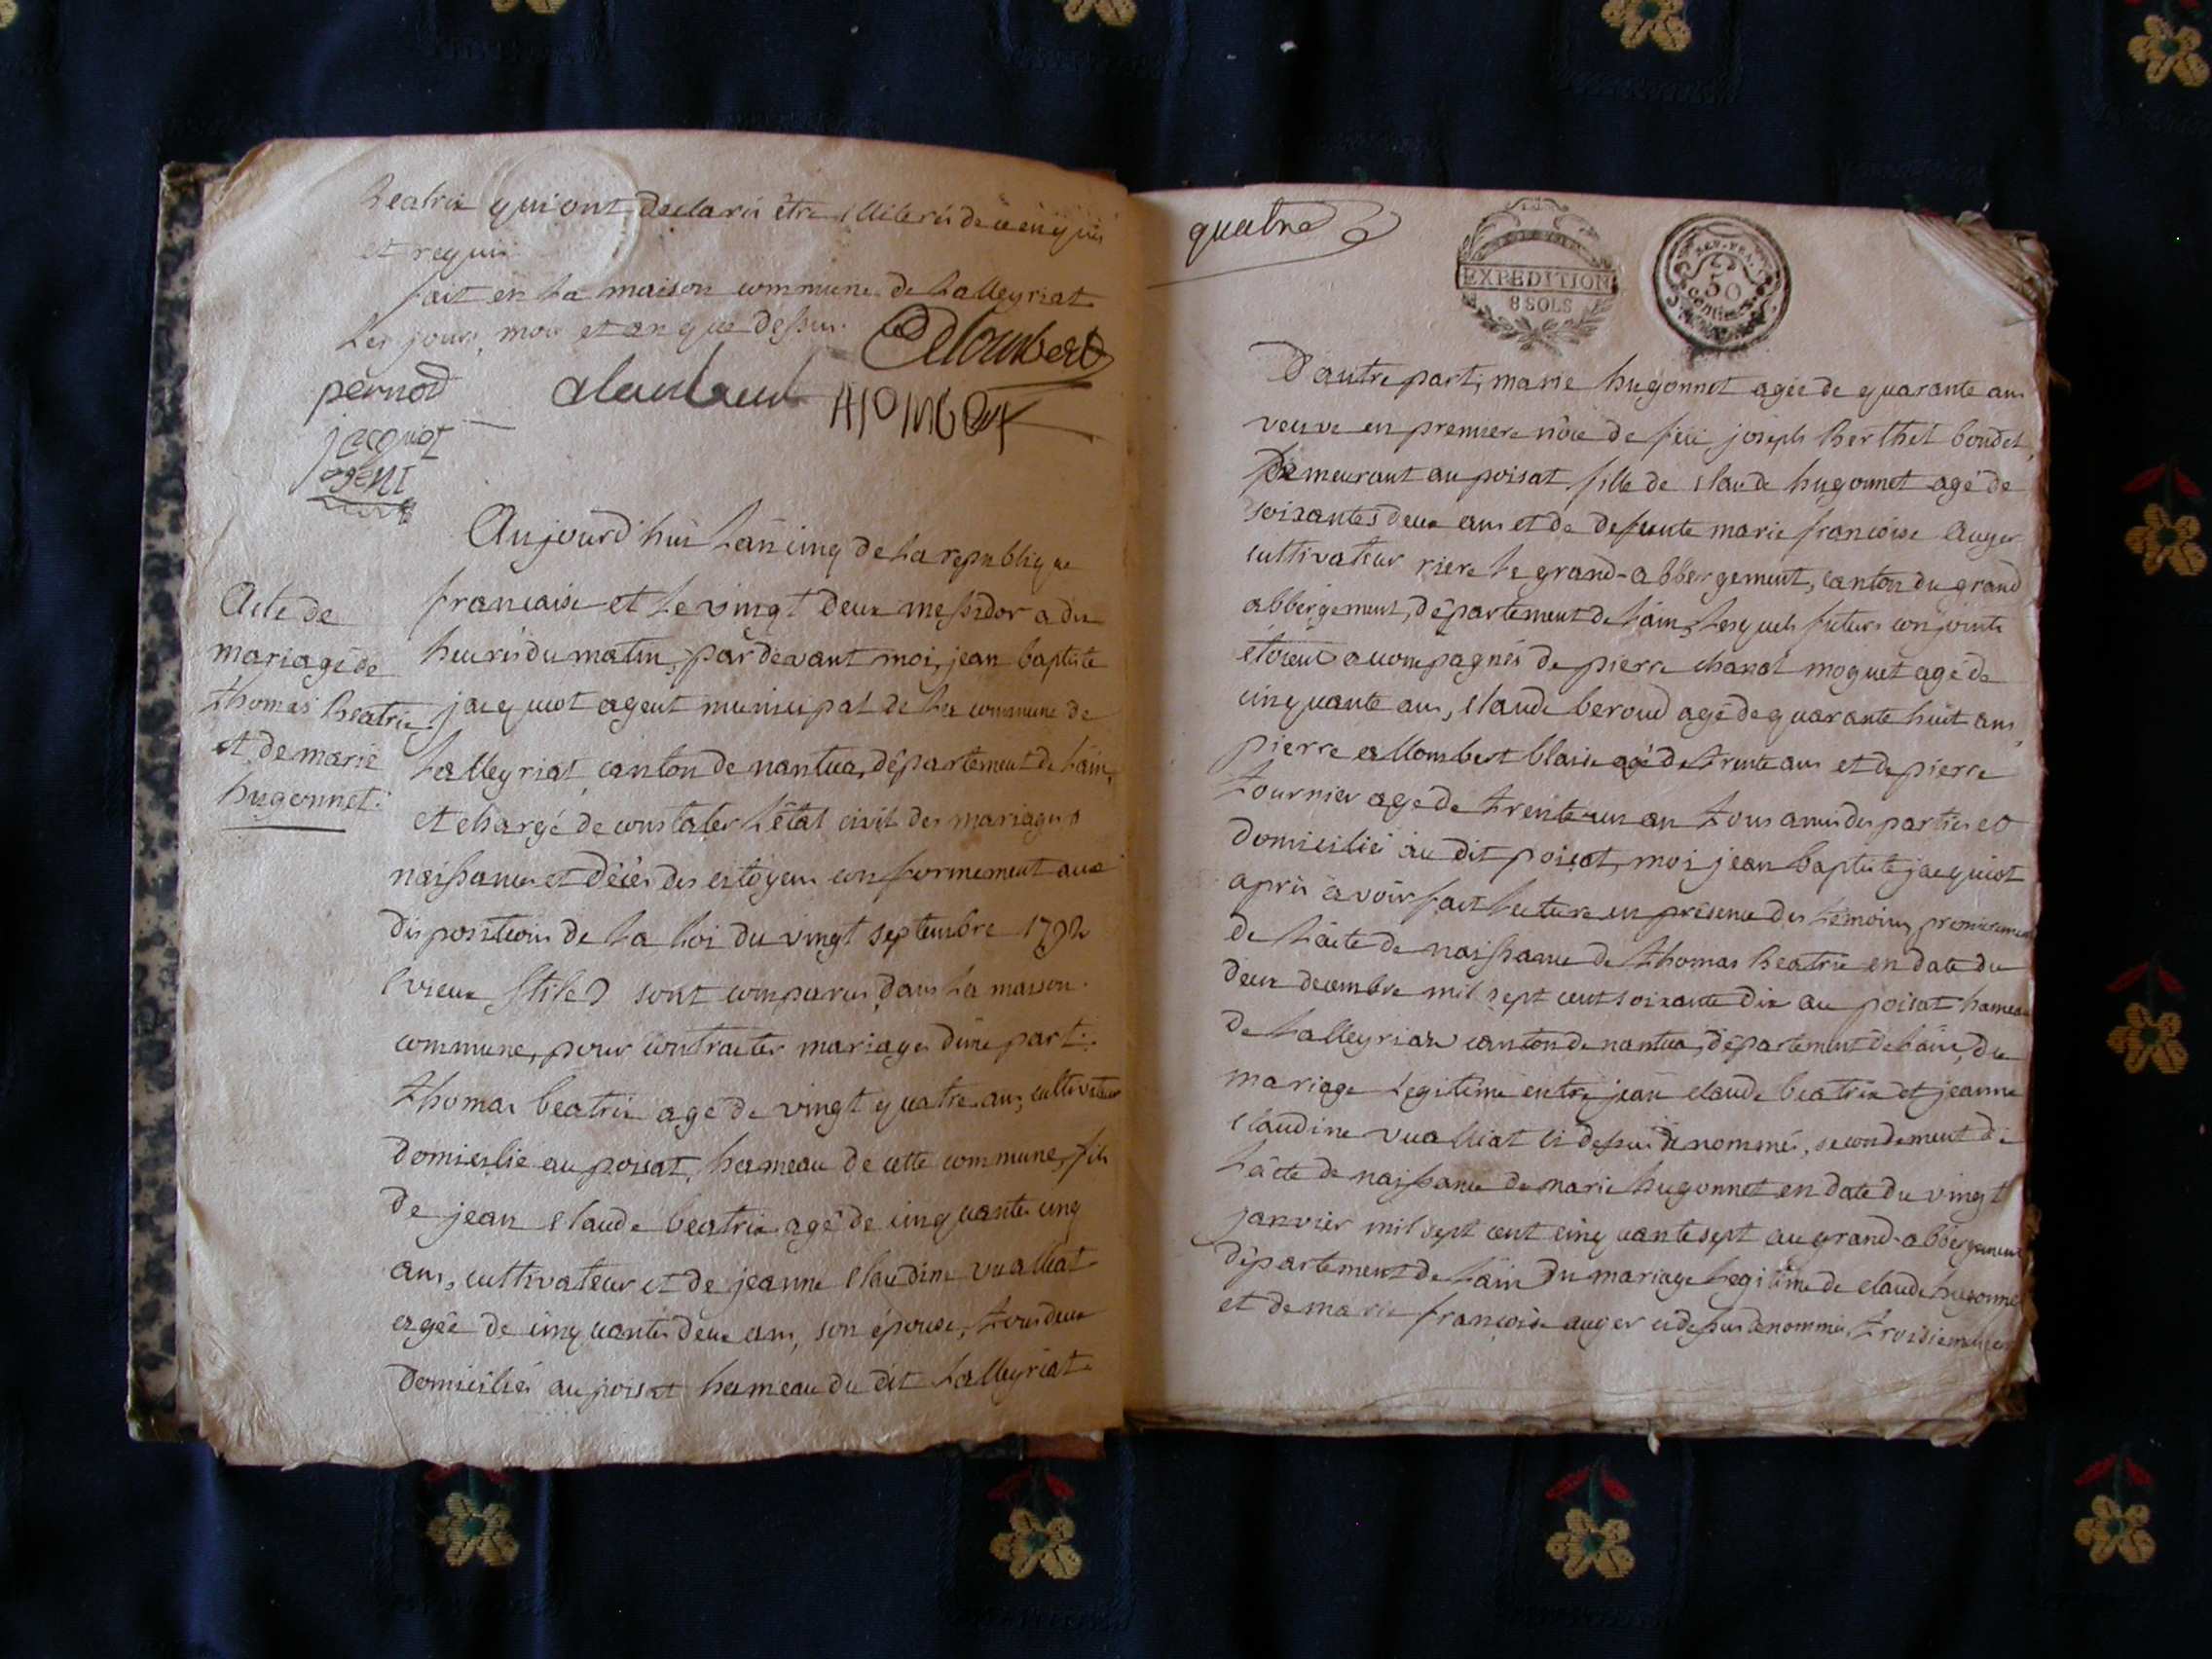 Beatrix qui ont déclarés être illiterés de ce enquis
et requis
fait en la maison commune de Lalleyriat
Les jours, mois et an que dessus.
pernod
jacquot
agent
Aujourd'hui L'an cinq de La republique
francaise et Le vingt deux messidor a dix
heures du matin, pardevant moi, jean baptiste
jacquiot agent municipal de La commune de
Lalleyriat, canton de nantua, département de L'ain,
et chargé de constater L'état civil des mariages
naissances et décès des citoyens conformement aux
dispositions de La Loi du vingt septembre 1792
(vieux stile) sont comparus dans La maison
commune, pour contracter mariage d'une part:
thomas beatrix agé de vingt quatre ans, cultivateur
domicilié au poisat, hameau de cette commune, fils
de jean claude beatrix agé de cinquante cinq
ans, cultivateur et de jeanne claudine vuaillat
agée de cinquante deux ans, son épouse, tous deux
domiciliés au poisat hameau du dit Lalleyriat
Acte de
mariage de
thomas Beatrix
et de marie
hugonnet.
quatre
EXPEDITION
8 SOLS
REP. FRA.
50
centimes
D'autre part, marie hugonnet agée de quarante ans
veuve en premiere nôce de feü joseph Berthet bondet,
Demeurant au poisat, fille de claude hugonnet agé de
soixantes deux ans et de defunte marie francoise Auger
cultivateur riere Le grand-abbergement, canton du grand
abbergement, département de L'ain, Lesquels futurs conjoints
étoient acompagnés de pierre chanal moguet agé de
cinquante ans, claude beroud agé de quarante huit ans,
pierre allombert blaise agé de trente ans et de pierre
tournier agé de trente un an tous amis des parties et
domiciliés au dit poisat, moi jean baptiste jacquiot
après avoir fait Lecture en présence des témoins, premierement
de L'acte de naissance de thomas Beatrix en date du
deux decembre mil sept cent soixante dix au poisat hameau
de Lalleyriat canton de nantua, département de L'ain, du
mariage Legitime entre jean claude beatrix et jeanne
claudine vualliat ci dessus dénommés, secondement de
L'acte de naissance de marie hugonnet en date du vingt
janvier mil sept cent cinquante sept au grand-abbergement
département de L'ain du mariage Legitime de claude hugonnet
et de marie françoise auger ci dessus dénommés, troisiemement